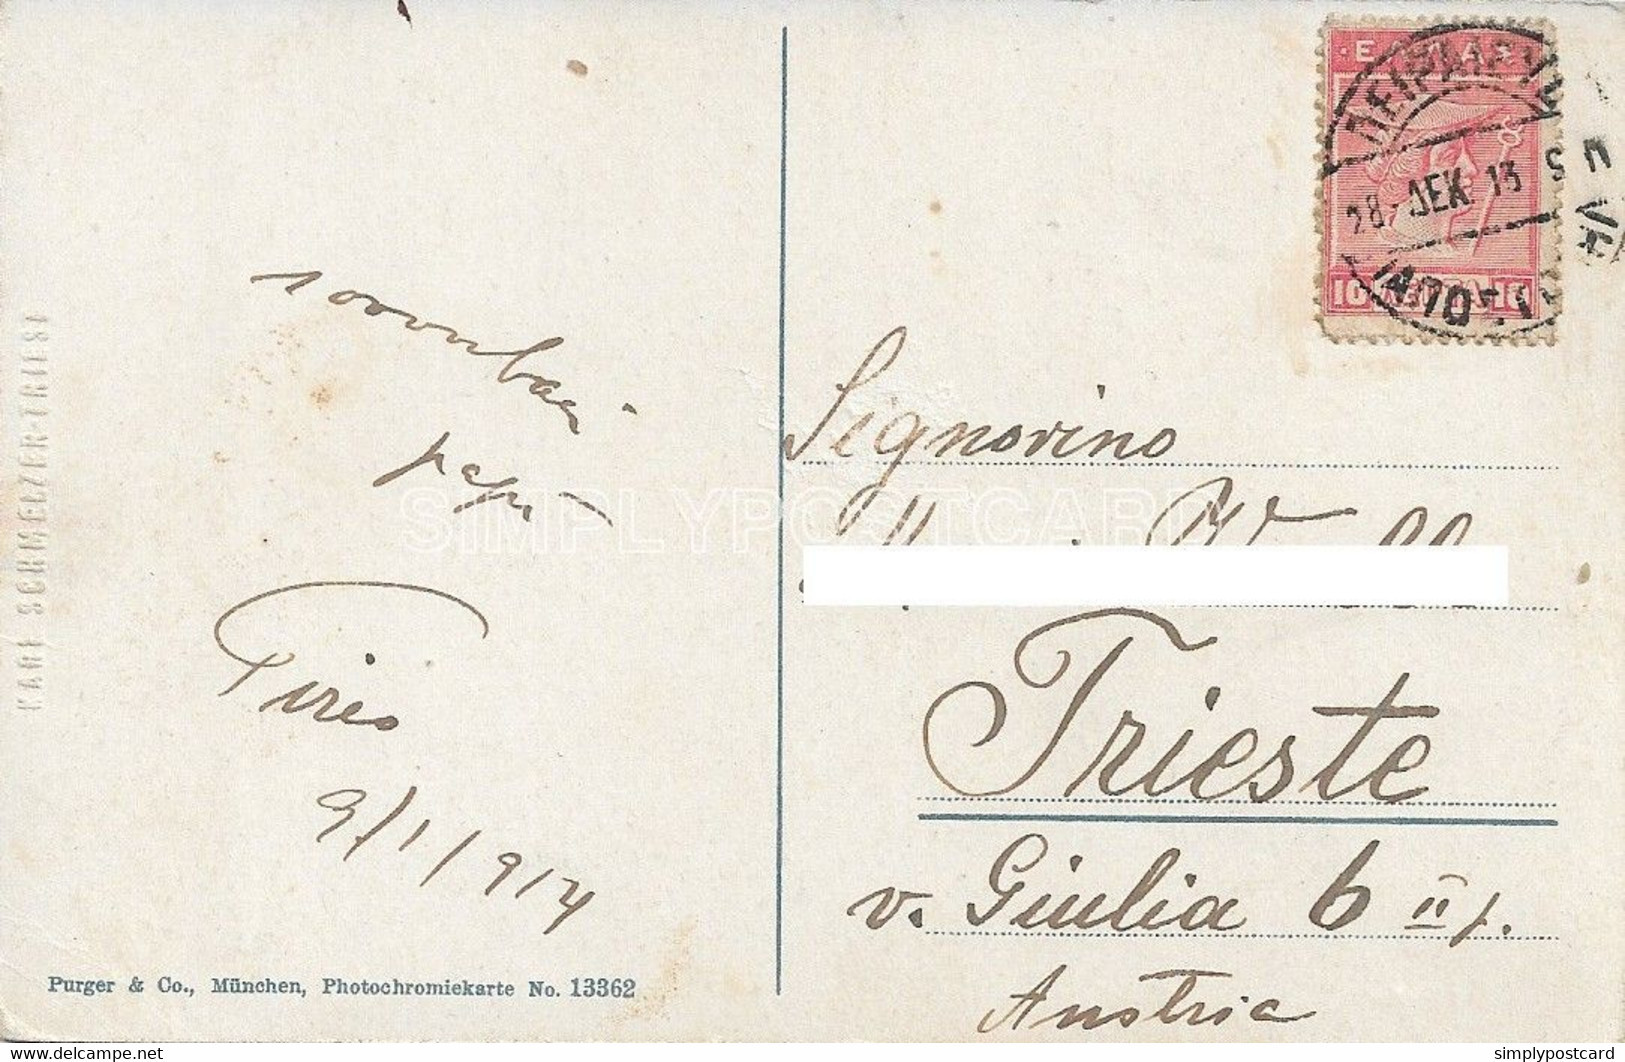 ΕΛΛΑΣ
ΠΕΙΡΑΙΕΥΣ
28 ΔΕΚ 13
10 ΛΕΠΤΑ 10
KARL SCHMELZER-TRIEST
SIMPLYPOSTCARD
papà
Pireo
9/1/914
Signorino
Trieste
v. Giulia 6 II p.
Austria
Purger & Co., München, Photochromiekarte No. 13362
delcampe.net
simplypostcard